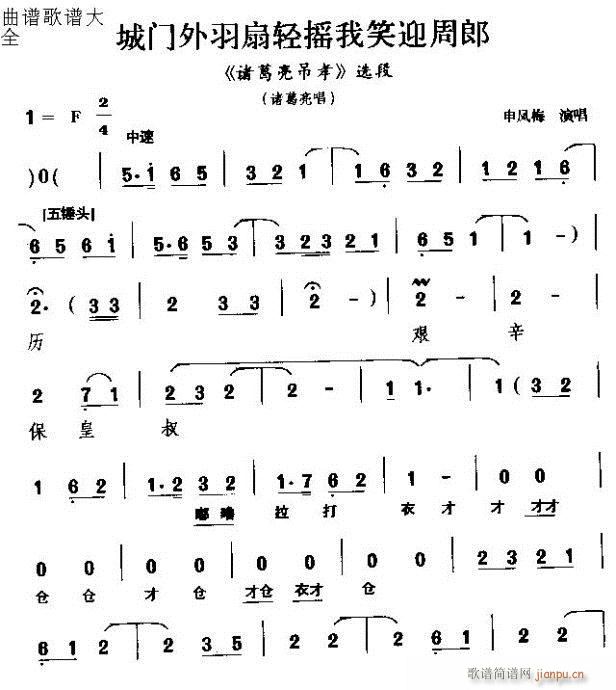 曲谱歌谱大
全
城门外羽扇轻摇我笑迎周郎
《诸葛亮吊孝》选段
(诸葛亮唱)
1 = F 2/4
申凤梅 演唱
中速
)0( | 5·i 6 5 | 3 2 1 | 1 6 3 2 | 1 2 1 6
[五锤头]
6 5 6 i | 5·6 5 3 | 3 2 3 2 1 | 6 5 1 | 1 - )
2· ( 3 3 | 2 3 3 | 2 - ) | 2 - | 2 -
历 艰 辛
2 7 1 | 2 3 2 2 | 2 - | 1 1· | 1 ( 3 2
保 皇 叔
1 6 2 | 1·2 3 2 | 1·7 6 2 | 1 - | 0 0
嘟噜 拉 打 衣 才 才 才才
0 0 | 0 0 | 0 0 | 0 0 | 2 3 2 1
仓 仓 才 仓 才仓 衣才 仓
6 1 2 | 2 3 2 | 2 2 | 2 6 1 | 2 2
歌谱简谱网
jianpu.cn